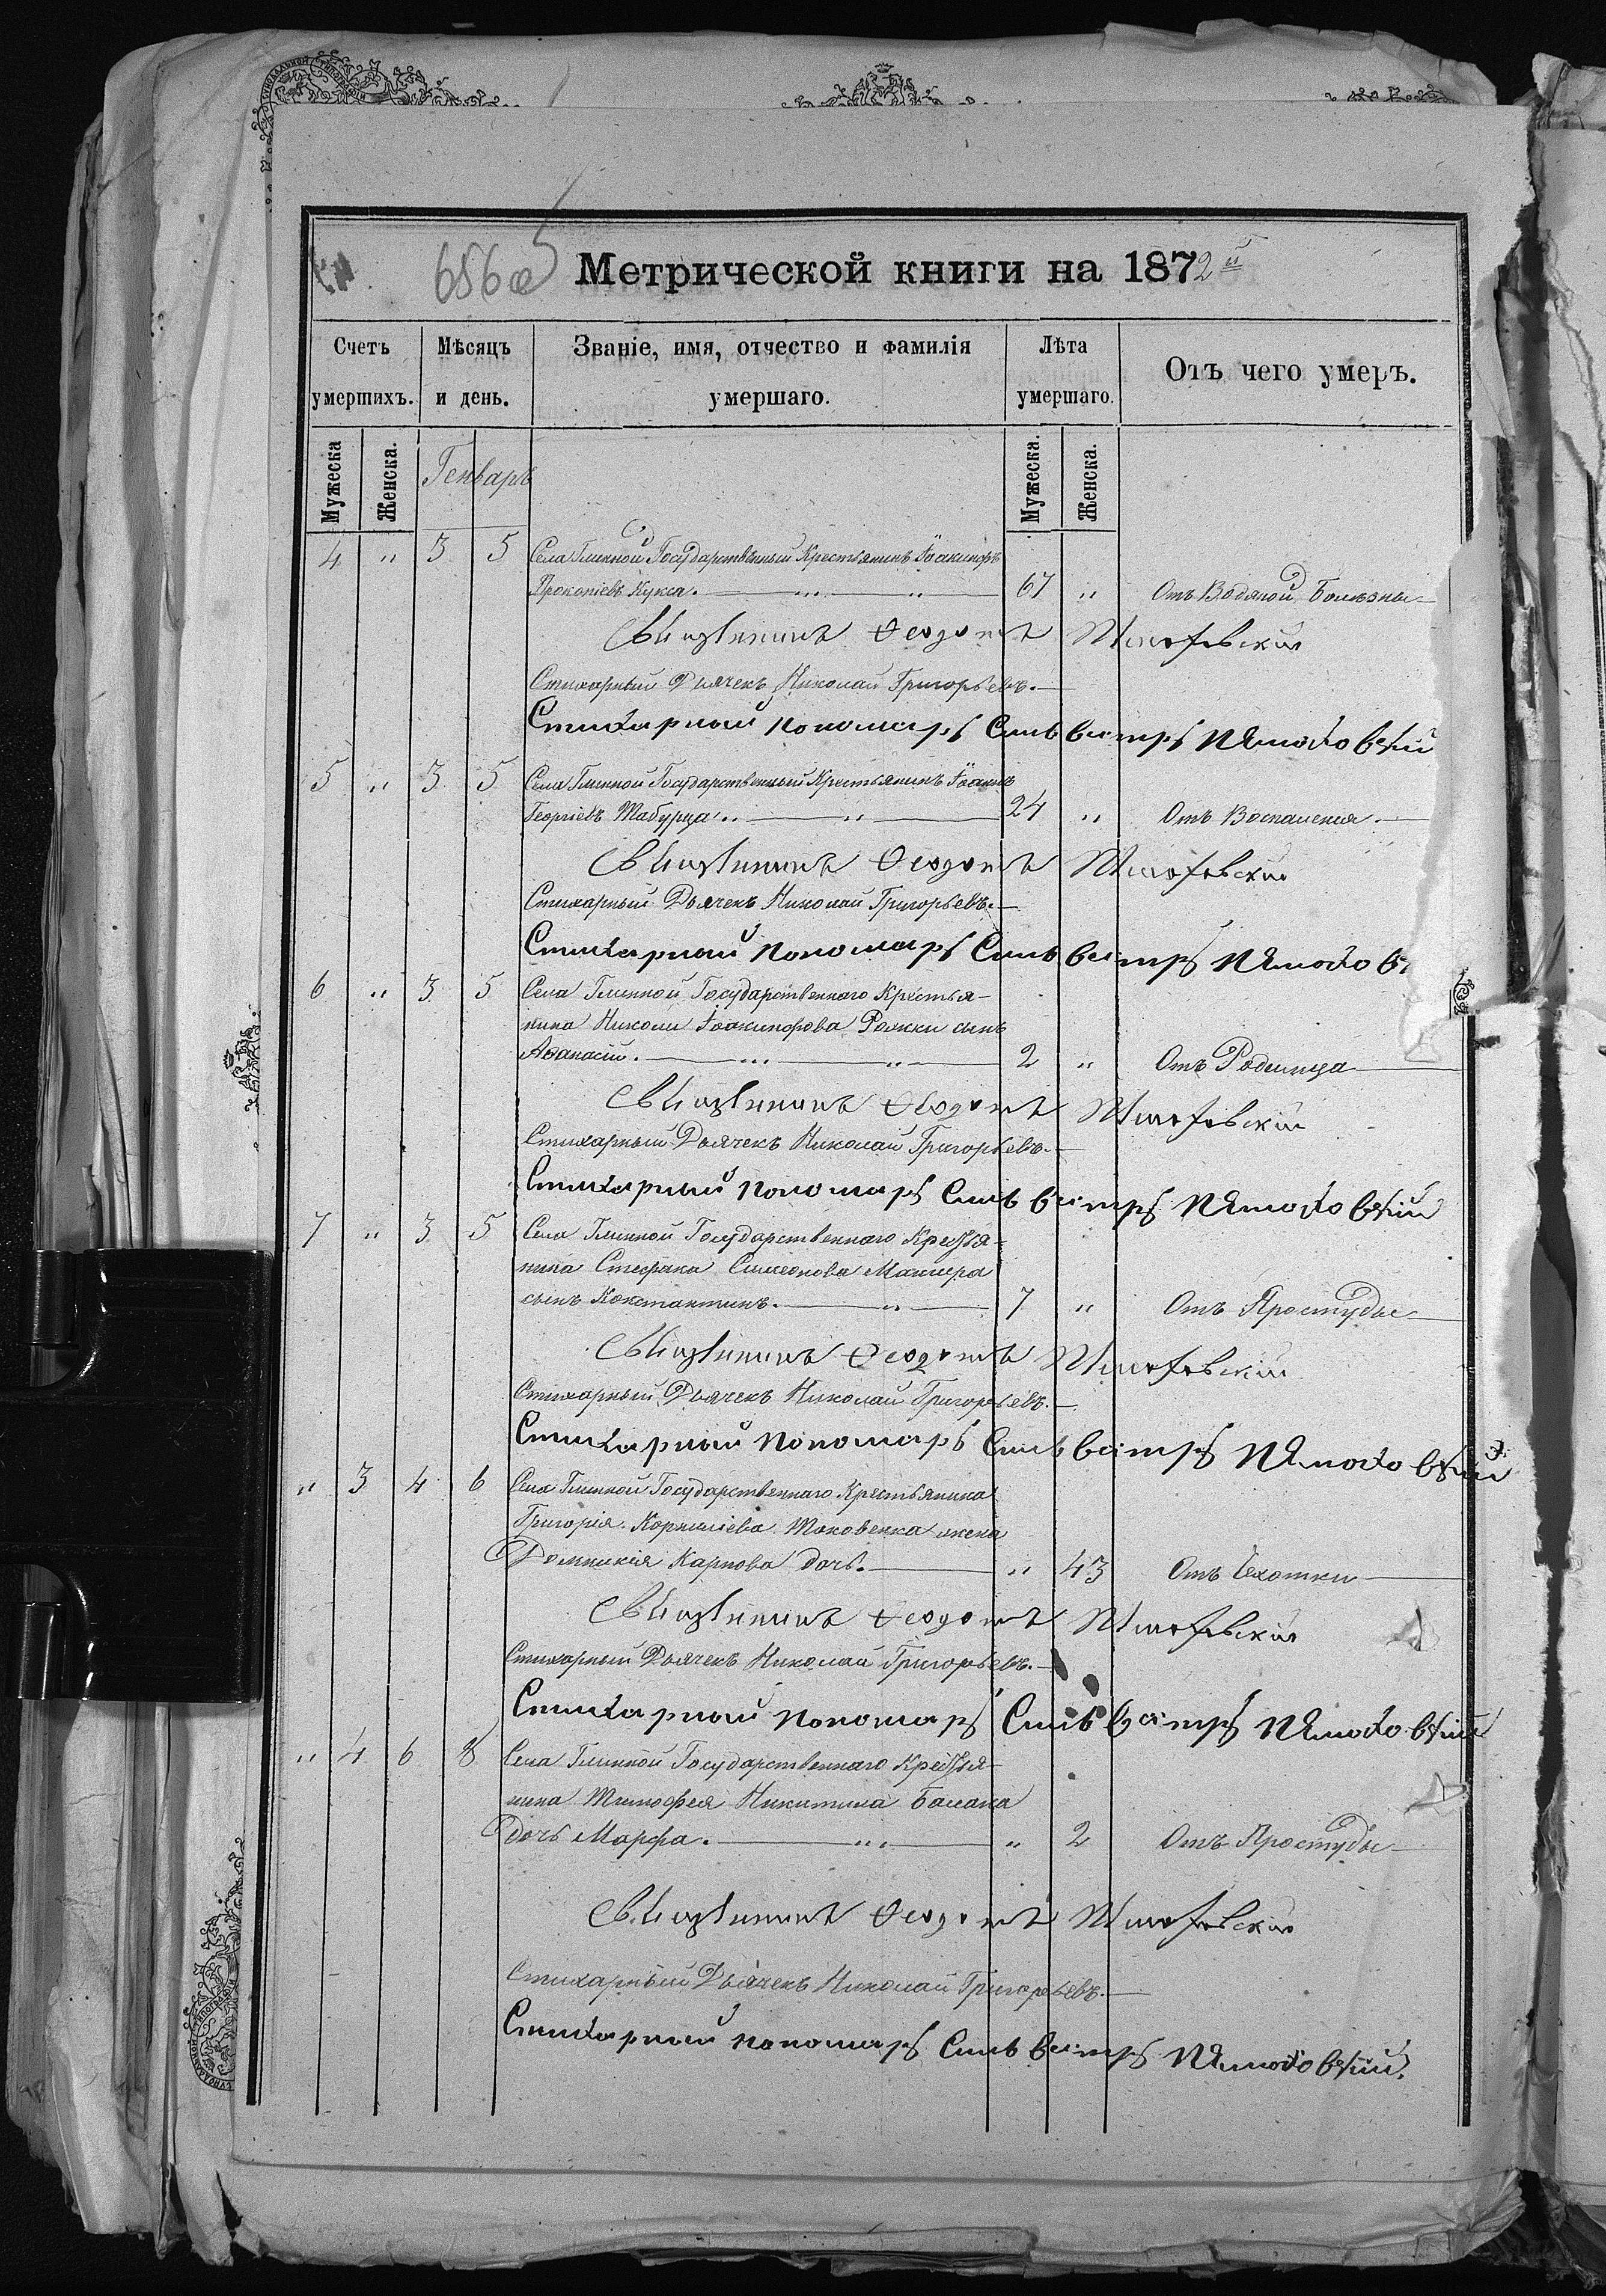 656
Метрической книги на 1872й
Счетъ умершихъ.
Мѣсяцъ и день.
Званіе, имя, отчество и фамилія умершаго.
Лѣта умершаго.
Отъ чего умеръ.
Мужеска
Женска.
Генварь
Мужеска.
Женска.
4 „ 3 5 Села Глинной Государственный Крестьянинъ Іоакимъ
Прокопіевъ Кукса. 67 „ Отъ Водяной Болѣзны
Священникъ Ѳеодотъ
Стихарный Дьячекъ Николай Григорьевъ.
Стихарный пономарь Сильвестръ
5 „ 3 5 Села Глинной Государственный Крестьянинъ Іоаннъ
Георгіевъ Шабурца. 24 „ Отъ Воспаленія.
Священникъ Ѳеодотъ
Стихарный Дьячекъ Николай Григорьевъ.
Стихарный пономарь Сильвестръ
6 „ 3 5 Села Глинной Государственнаго Крестья-
нина Николы Рожки сынъ
Аѳанасій. 2 „ Отъ Родимца
Священникъ Ѳеодотъ
Стихарный Дьячекъ Николай Григорьевъ.
Стихарный пономарь Сильвестръ
7 „ 3 5 Села Глинной Государственнаго Крестья-
нина Стефана Симеонова
сынъ Константинъ. 7 „ Отъ Простуды
Священникъ Ѳеодотъ
Стихарный Дьячекъ Николай Григорьевъ.
Стихарный пономарь Сильвестръ
„ 3 4 6 Села Глинной Государственнаго Крестьянина
Григорія Корниліева Токовенка жена
Домникія Карпова дочь. „ 43 Отъ Чахотки
Священникъ Ѳеодотъ
Стихарный Дьячекъ Николай Григорьевъ.
Стихарный пономарь Сильвестръ
„ 4 6 8 Села Глинной Государственнаго Крестья-
нина Тимофея Никитина Балана
дочь Марфа. „ 2 Отъ Простуды
Священникъ Ѳеодотъ
Стихарный Дьячекъ Николай Григорьевъ.
Стихарный пономарь Сильвестръ